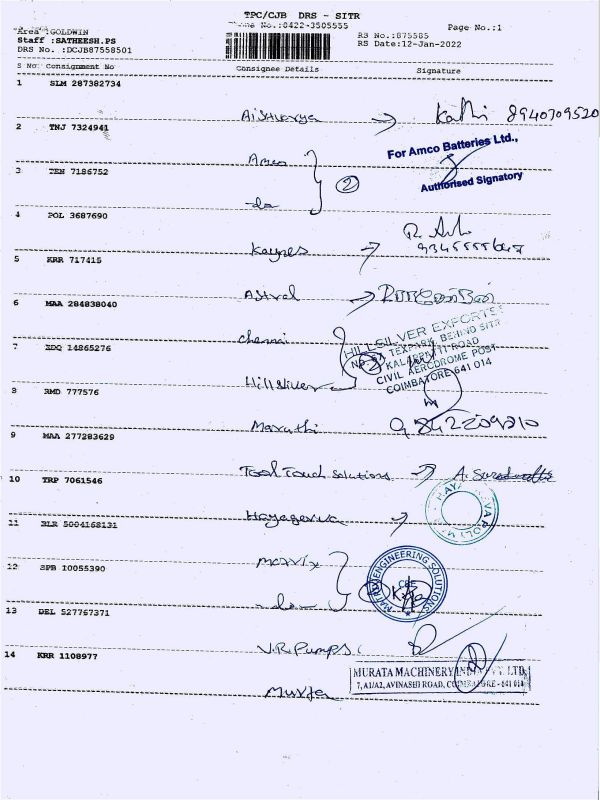 TPC/CJB DRS - SITR
Area :GOLDWIN
Phone No.:0422-3505555
Page No.:1
Staff :SATHEESH.PS
RS No.:875585
DRS No. :DCJB87558501
RS Date:12-Jan-2022
S No Consignment No Consignee Details Signature
1 SLM 287382734
Aishwarya 8940709520
2 TNJ 7324941
Amco
For Amco Batteries Ltd.,
3 ZEN 7186752
Authorised Signatory
do
2
4 POL 3687690
Kaynes
5 KRR 717415
Astral
6 MAA 284838040
Chennai
HILLSILVER EXPORTS
TEXPARK, BEHIND SITRA
7 XDQ 14865276
KALAPPATTI ROAD
CIVIL AERODROME POST
COIMBATORE 641 014
Hillsilver
2
8 RMD 777576
Maruthi
9 MAA 277283629
Tool Touch Solutions
10 TRP 7061546
Hayagreeva
11 BLR 5004168131
Matrix
12 SPB 10055390
ENGINEERING SOLUTIONS
CBE
do
13 DEL 527767371
V.R. Pumps
14 KRR 1108977
MURATA MACHINERY INDIA PVT. LTD.
7, A1/A2, AVINASHI ROAD, COIMBATORE - 641 014
Murata